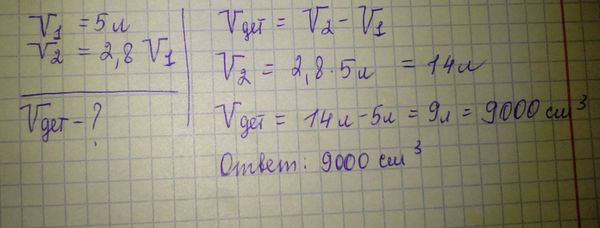 V₁ = 5л
V₂ = 2,8 V₁
Vдет - ?
Vдет = V₂ - V₁
V₂ = 2,8 · 5л = 14л
Vдет = 14л - 5л = 9л = 9000 см³
Ответ: 9000 см³